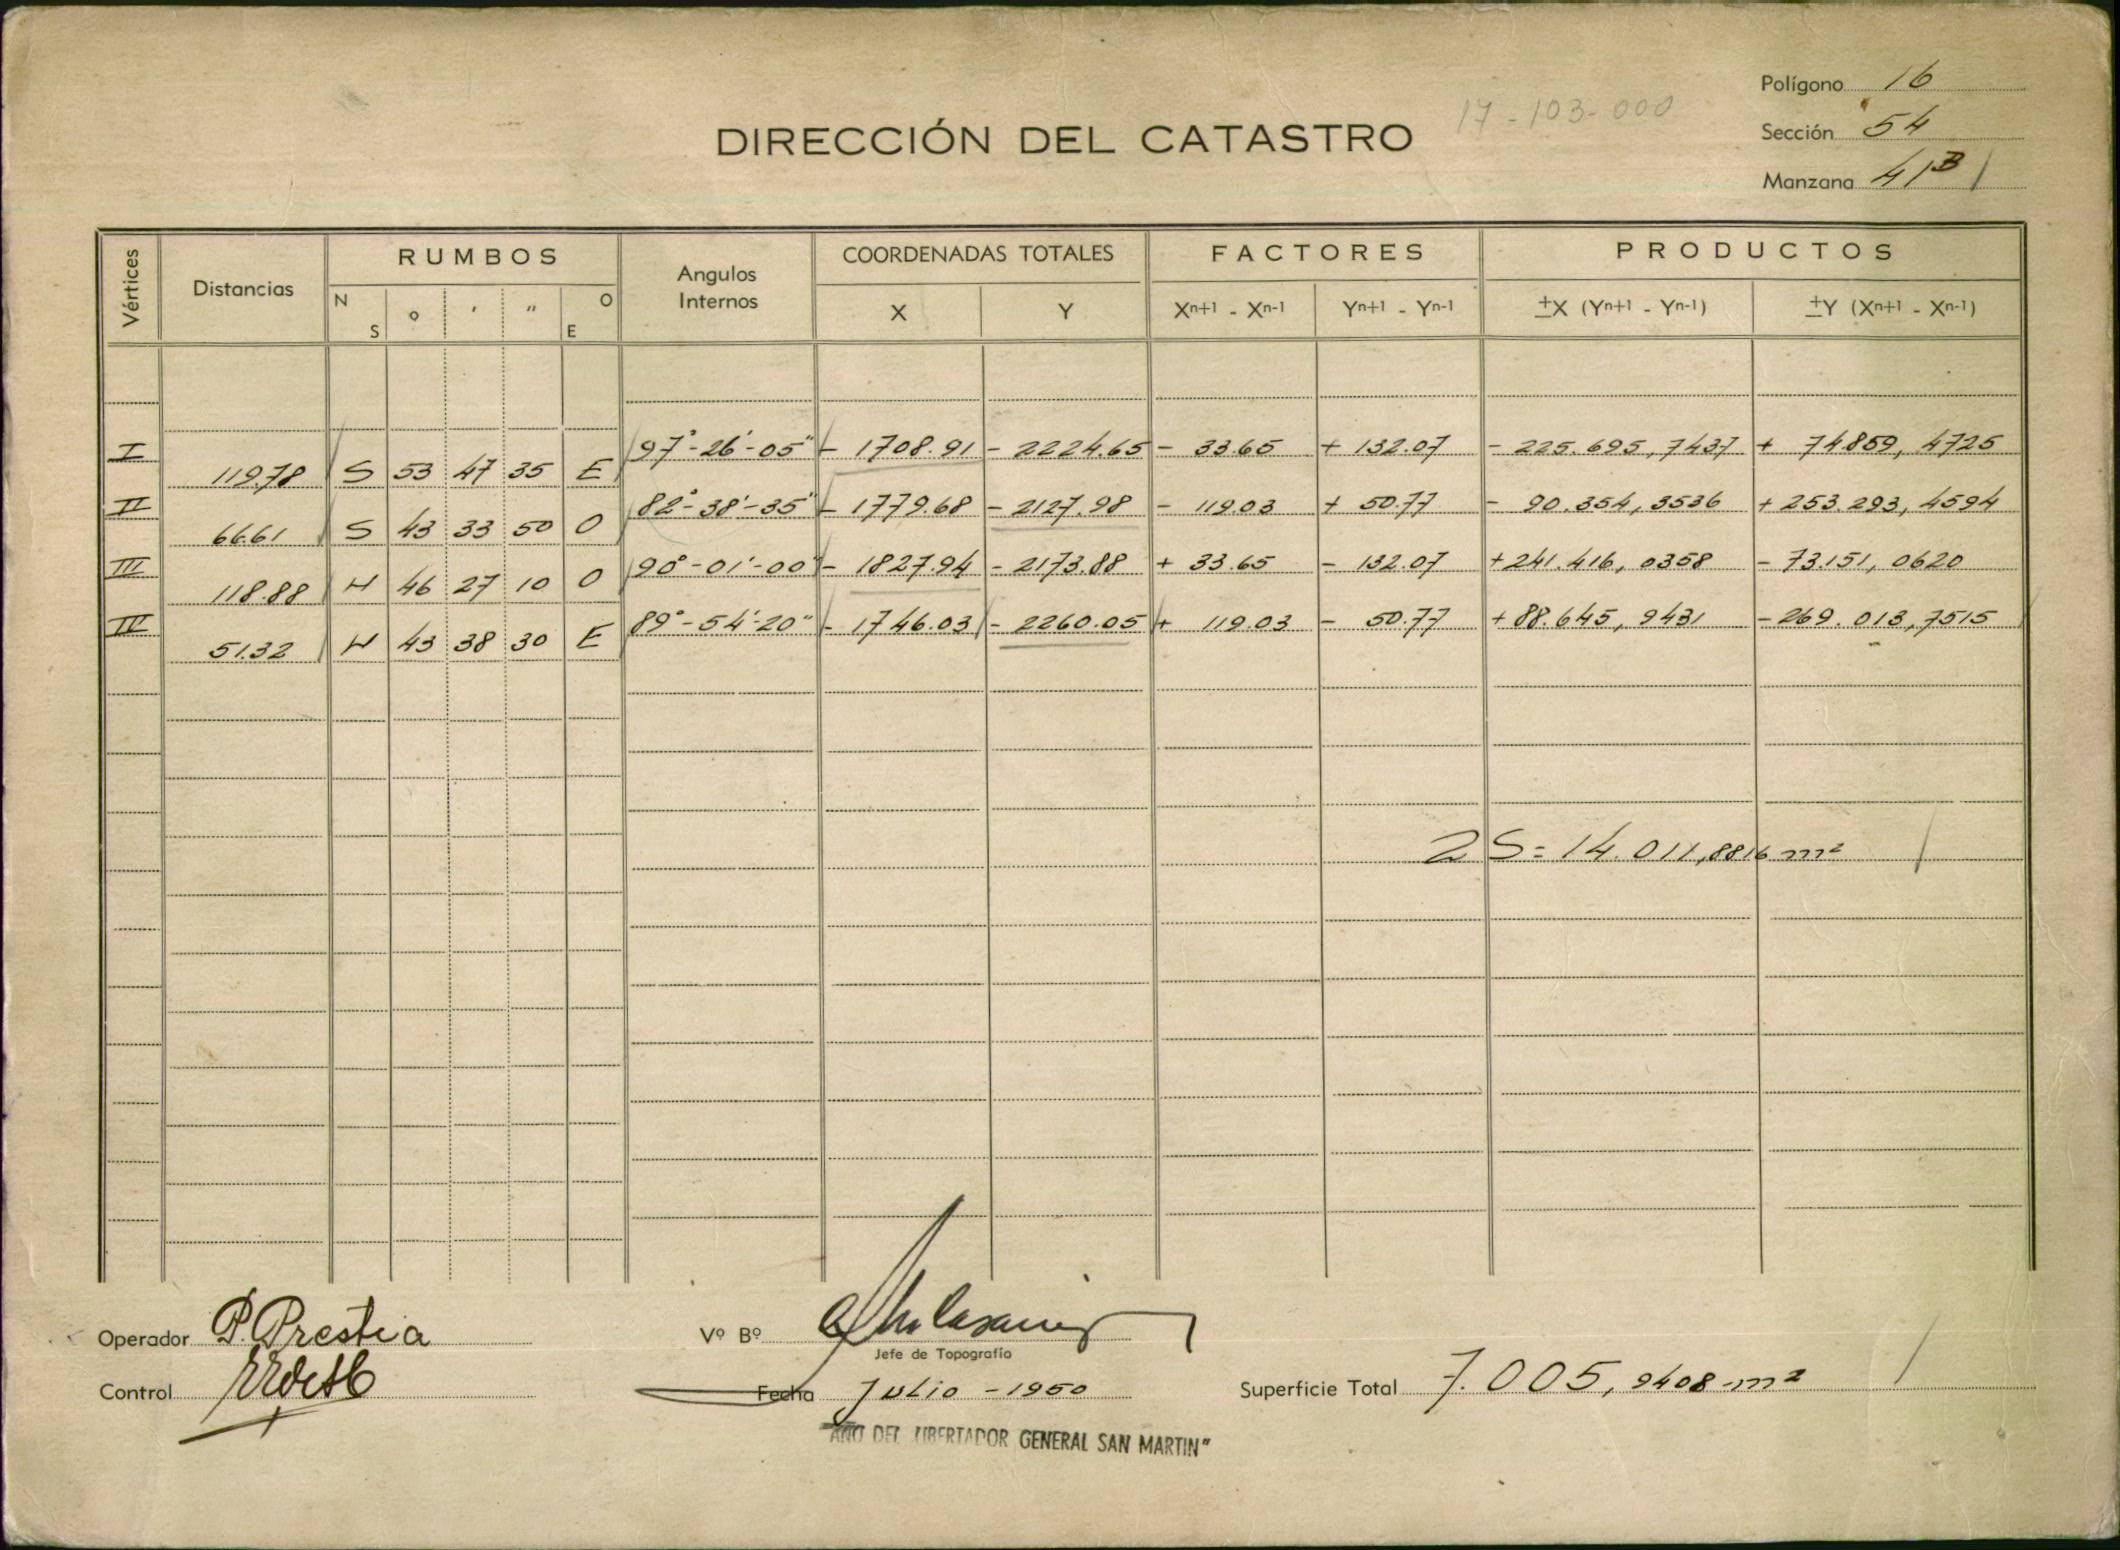 Polígono 16
17-103-000
DIRECCIÓN DEL CATASTRO
Sección 54
Manzana 41B
Vértices Distancias RUMBOS Angulos Internos COORDENADAS TOTALES FACTORES PRODUCTOS
N S o ' " O E X Y Xn+1 - Xn-1 Yn+1 - Yn-1 ±X (Yn+1 - Yn-1) ±Y (Xn+1 - Xn-1)
I 97°-26'-05" - 1708.91 - 2224.65 - 33.65 + 132.07 - 225.695,7437 + 74.859,4725
119.78 S 53 47 35 E
II 82°-38'-35" - 1779.68 - 2127.98 - 119.03 + 50.77 - 90.354,3536 + 253.293,4594
66.61 S 43 33 50 O
III 90°-01'-00" - 1827.94 - 2173.88 + 33.65 - 132.07 + 241.416,0358 - 73.151,0620
118.88 N 46 27 10 O
IV 89°-54'-20" - 1746.03 - 2260.05 + 119.03 - 50.77 + 88.645,9431 - 269.013,7515
51.32 N 43 38 30 E
2 S = 14.011,8816 m²
Operador P. Prestia
Vº Bº
Jefe de Topografía
Control
Fecha Julio - 1950
Superficie Total 7.005,9408 m²
AÑO DEL LIBERTADOR GENERAL SAN MARTIN"